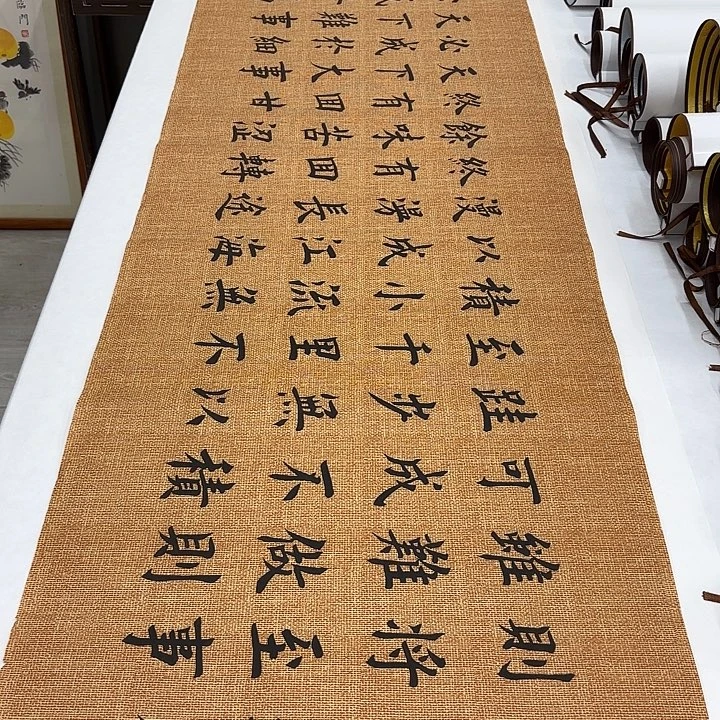 則將至事
雖難做則
可成不積
跬步無以
至千里不
積小流無
以成江海
漫漫長途
終有回轉
餘味苦澀
終有回甘
天下大事
必成於細
天下難事